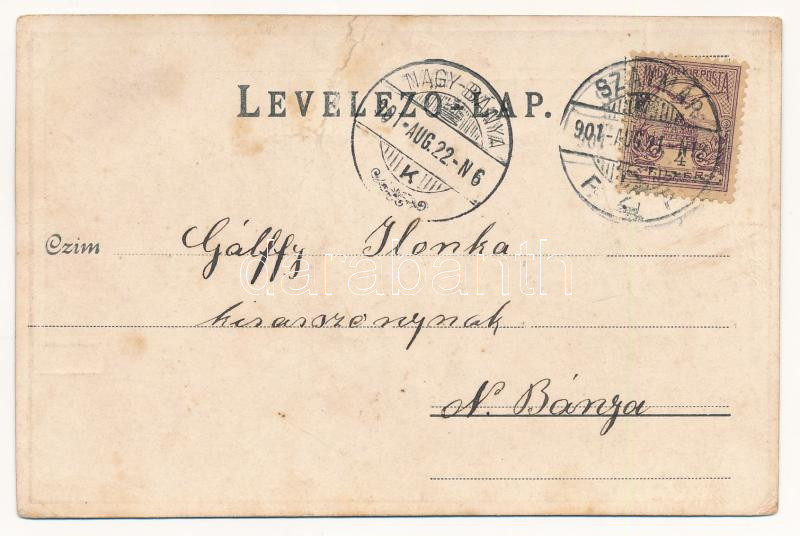 LEVELEZŐ LAP.
NAGY-BÁNYA
901-AUG.22.-N6
K
SZATMÁR-
901-AUG.
MAGYAR KIR. POSTA
4
FILLÉR
Czim Gálffy Ilonka
kisasszonynak
N. Bánya
darabanth